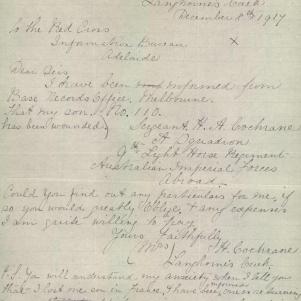 Langhornes Creek
December 8th 1917
To the Red Cross
Information Bureau
Adelaide
X
Dear Sirs
I have been informed from
Base Records Office, Melbourne.
That my son No. 110.
has been wounded Sergeant H. A. Cochrane
A Squadron
9th Light Horse Regiment
Australian Imperial Forces
Abroad
Could You find out any particulars for me, if
so you would greatly oblige, & any expenses
I am quite willing to pay
Yours Faithfully
Mrs H. Cochrane
Langhornes Creek.
P.S. You will understand my anxiety when I tell you
that I lost one son in France, I have been